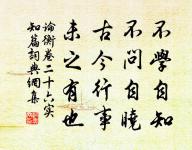 不學自知
不問自曉
古今行事
未之有也
論衡卷二十六實
知篇詞典網集